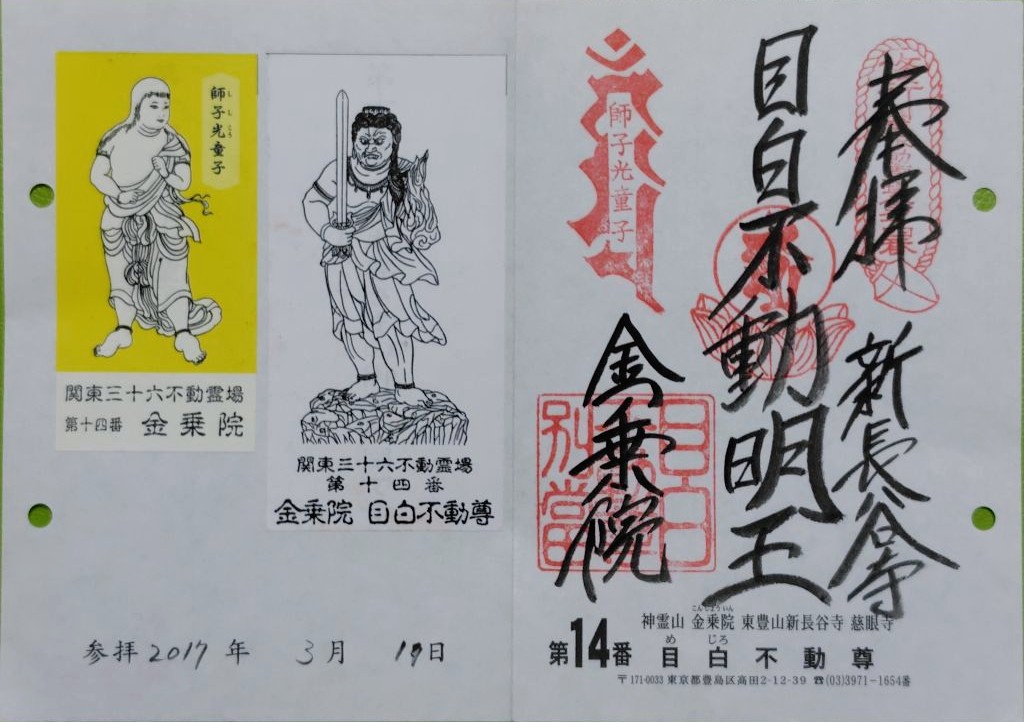 師子光童子
しし こう
関東三十六不動霊場
第十四番 金乗院
関東三十六不動霊場
第十四番
金乗院 目白不動尊
参拝2017年 3月 19日
奉拝
新長谷寺
目白不動明王
師子光童子
金乗院
目白
別當
こんじょういん
神霊山 金乗院 東豊山新長谷寺 慈眼寺
めじろ
第14番 目白不動尊
〒171-0033 東京都豊島区高田2-12-39 ☎(03)3971-1654番